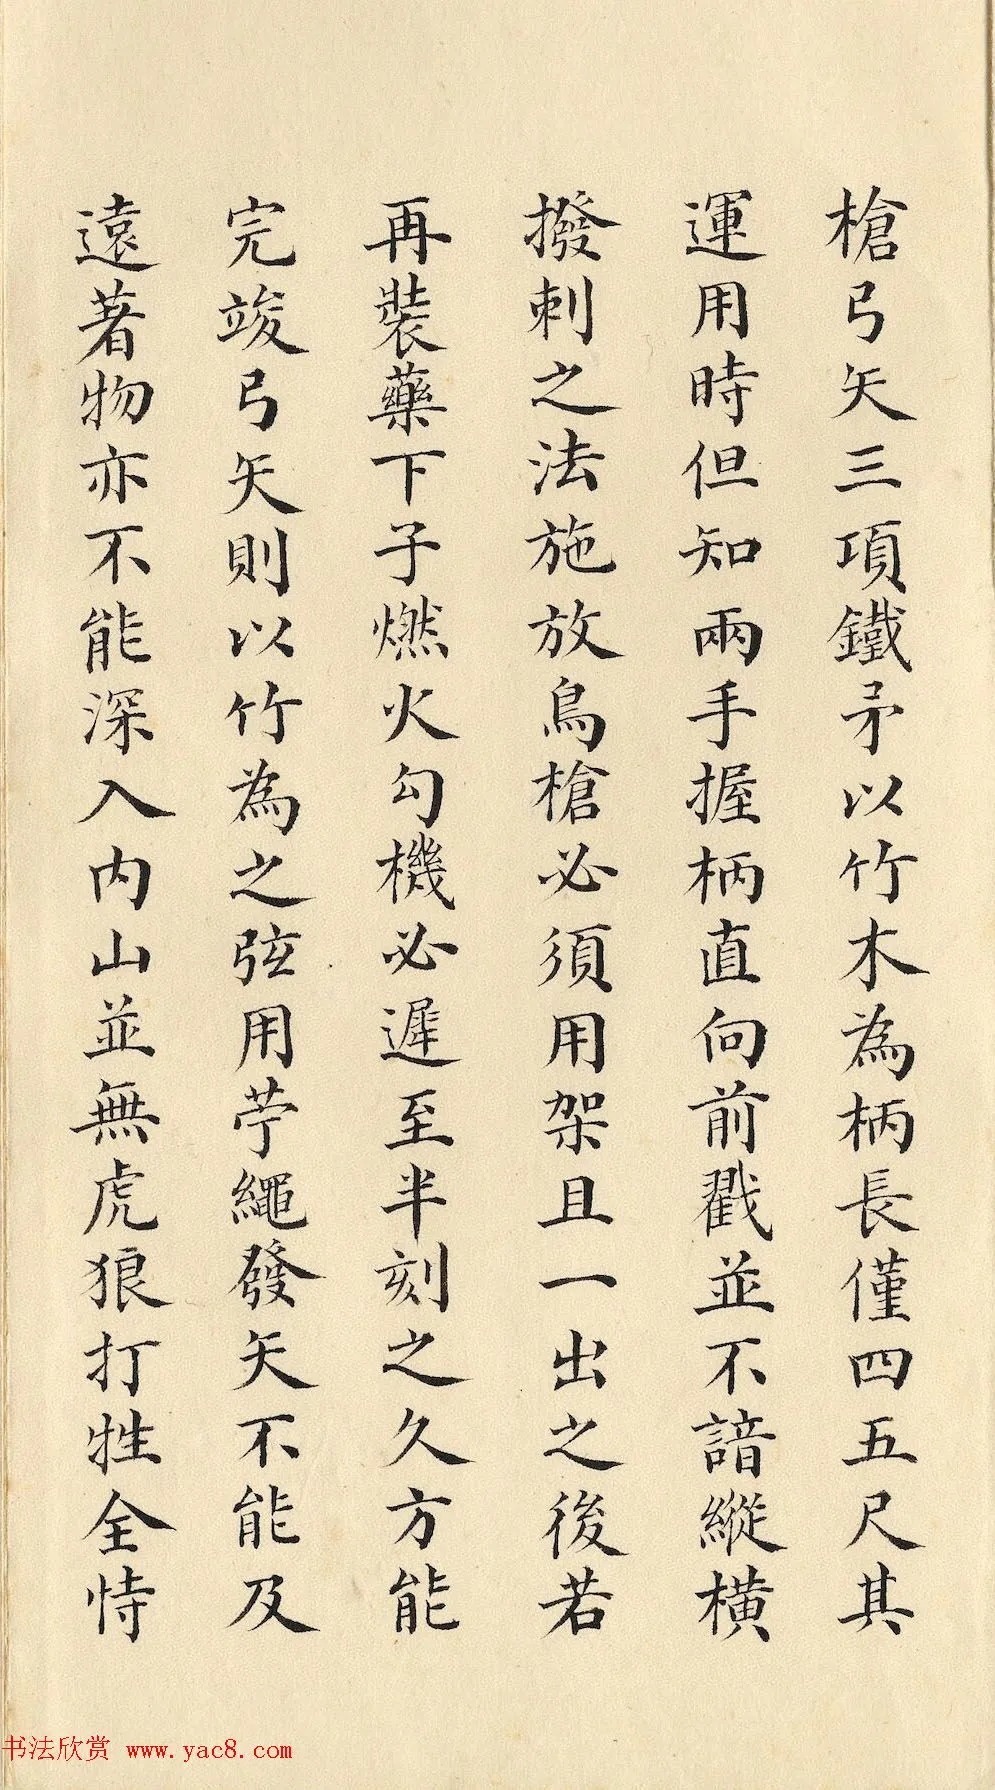 槍弓矢三項鐵矛以竹木為柄長僅四五尺其
運用時但知兩手握柄直向前戳並不諳縱橫
撥刺之法施放鳥槍必須用架且一出之後若
再裝藥下子燃火勾機必遲至半刻之久方能
完竣弓矢則以竹為之弦用苧繩發矢不能及
遠著物亦不能深入內山並無虎狼打牲全恃
书法欣赏 www.yac8.com